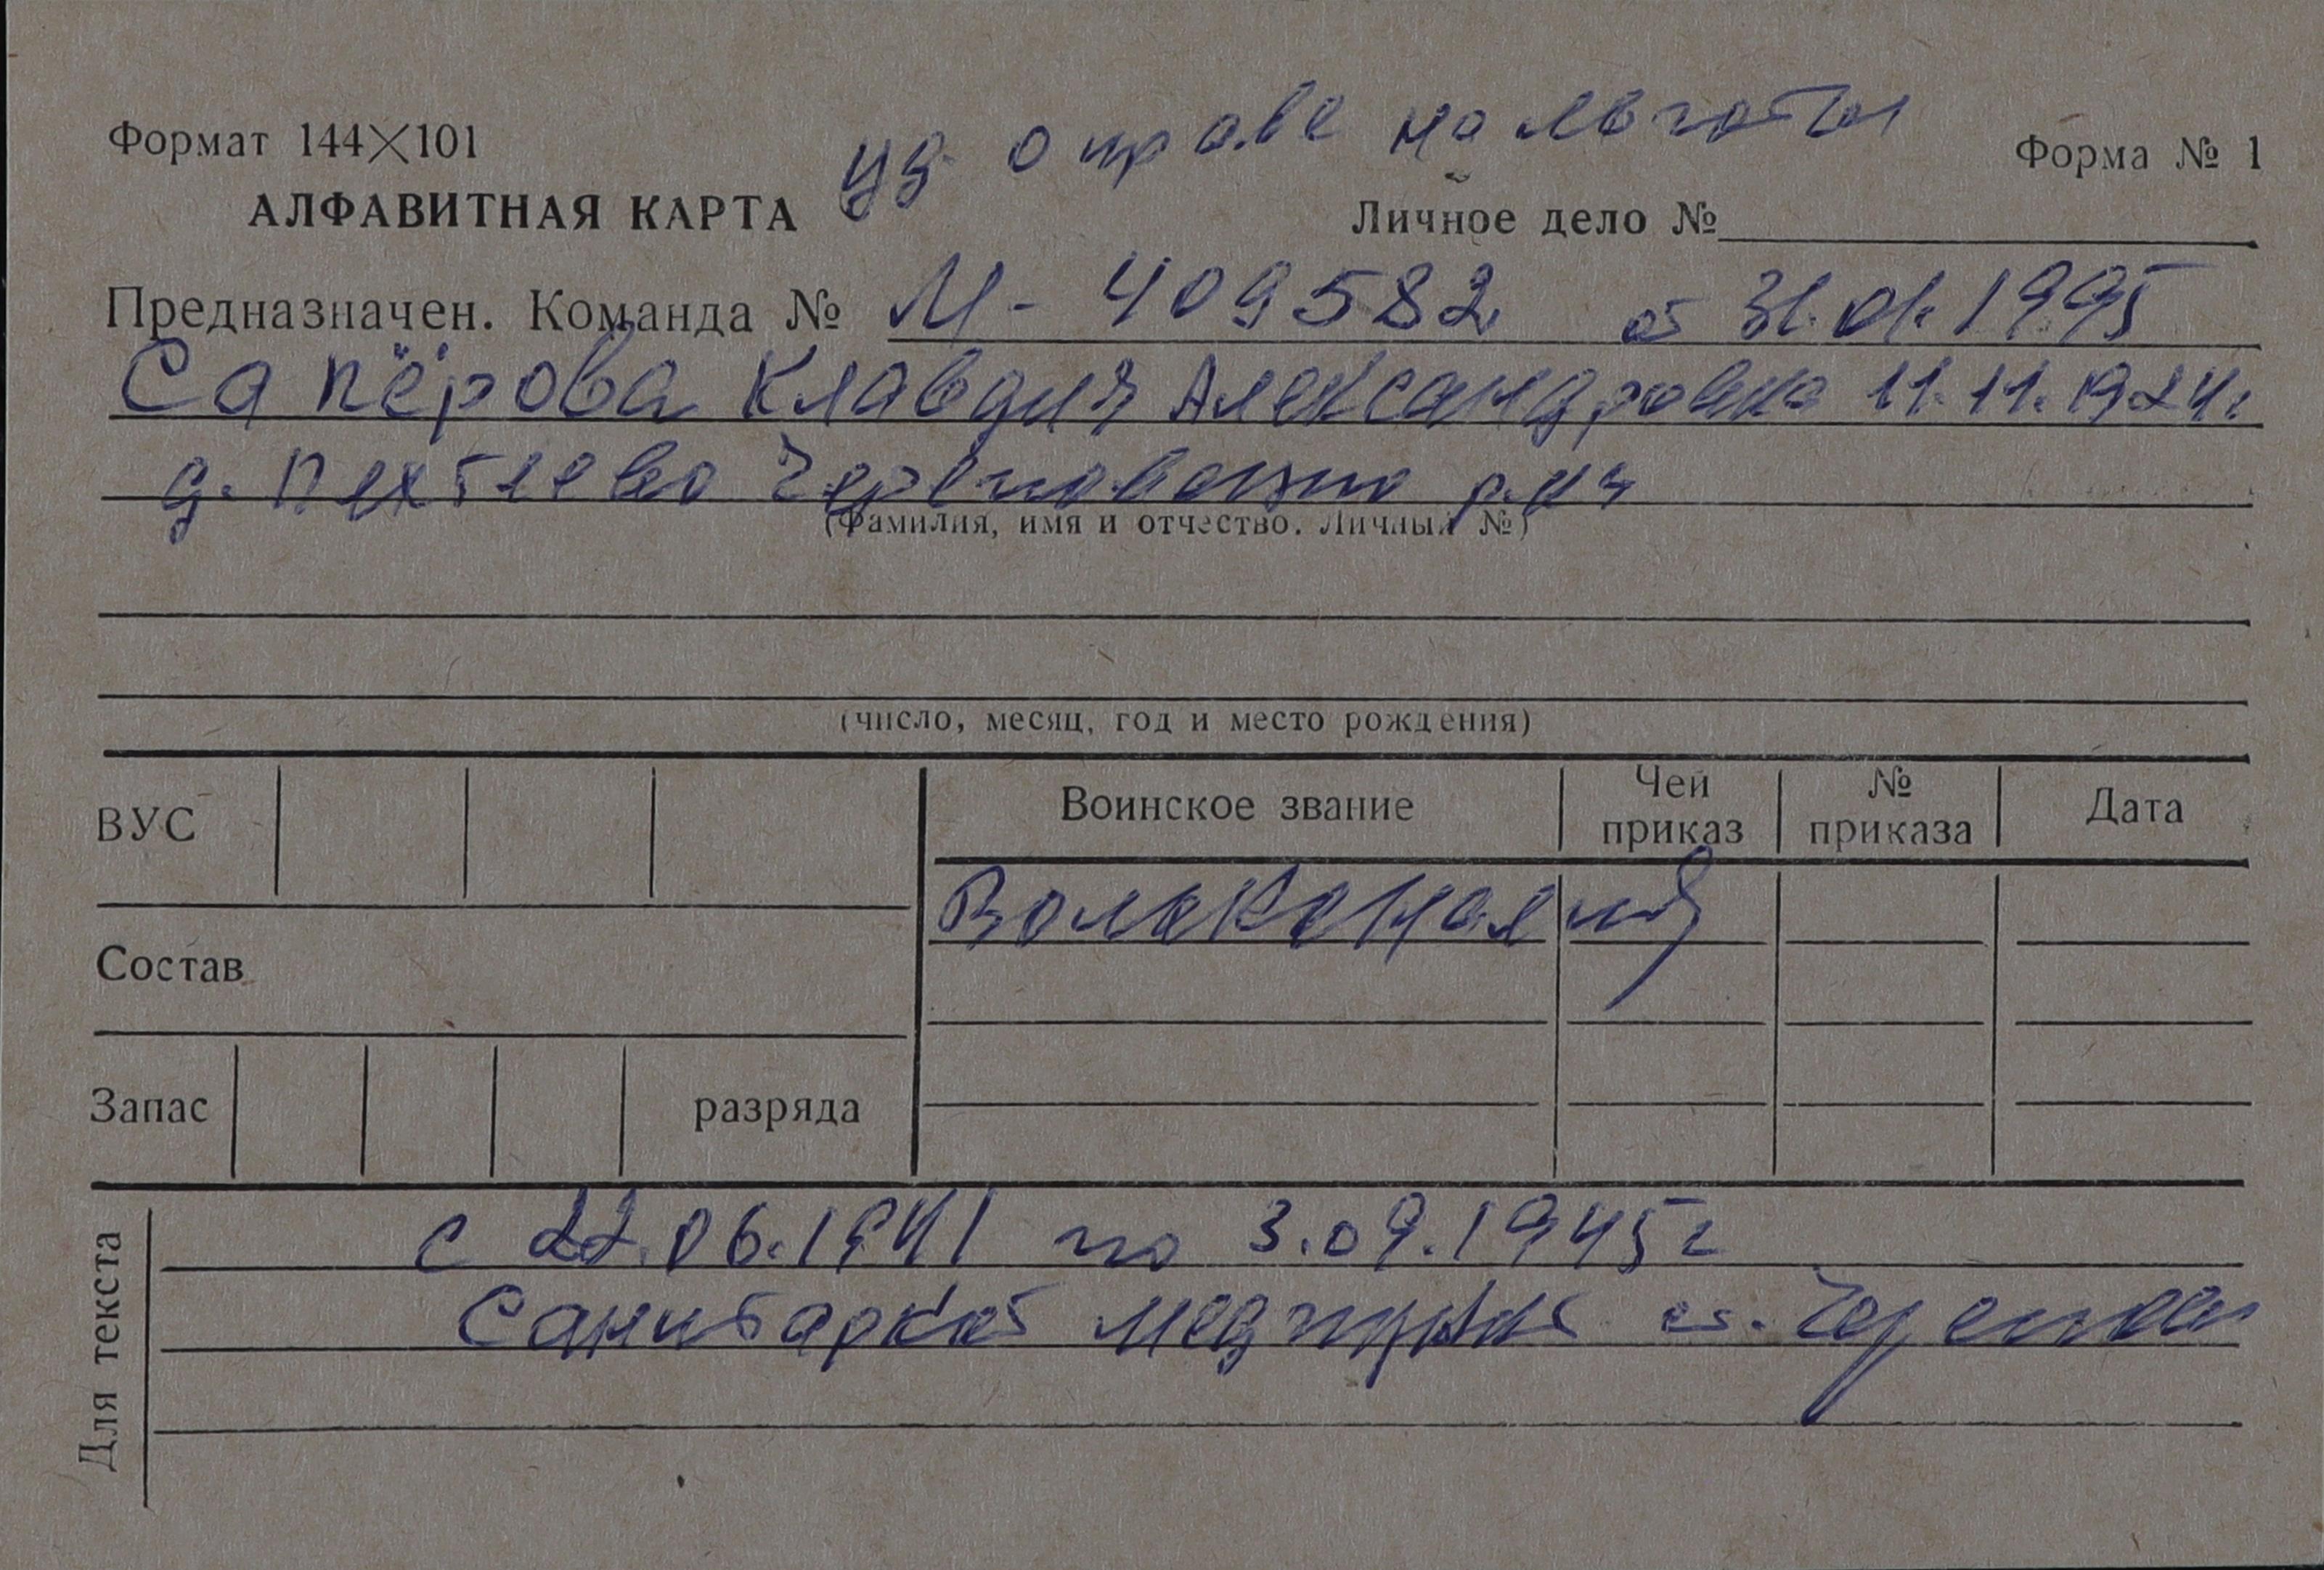 Формат 144×101
уд о праве на льготы
Форма № 1
АЛФАВИТНАЯ КАРТА
Личное дело №
Предназначен. Команда № М - 409582 от 31.01.1995
Сапёрова Клавдия Александровна 11.11.1924г
д. Пехтеево Череповецкого р-на
(Фамилия, имя и отчество. Личный №)
(число, месяц, год и место рождения)
ВУС
Воинское звание
Чей приказ
№ приказа
Дата
Вольнонаёмн
Состав
Запас
разряда
Для текста
с 22.06.1941 по 3.09.1945г
Санитаркой медпункта ст. Череповец